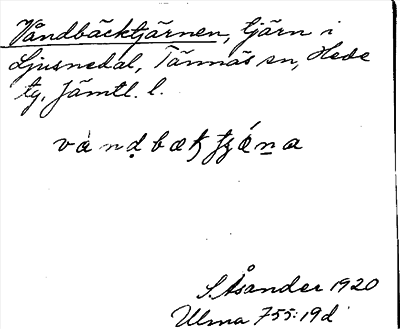 Våndbäcktjärnen, tjärn i
Ljusnedal, Tännäs sn, Hede
tg. Jämtl. l.
S. Åsander 1920
Ulma 755:19d